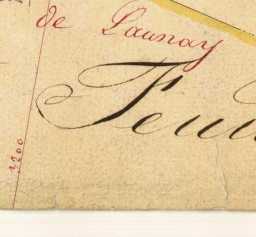 de Launay
Feui
2200